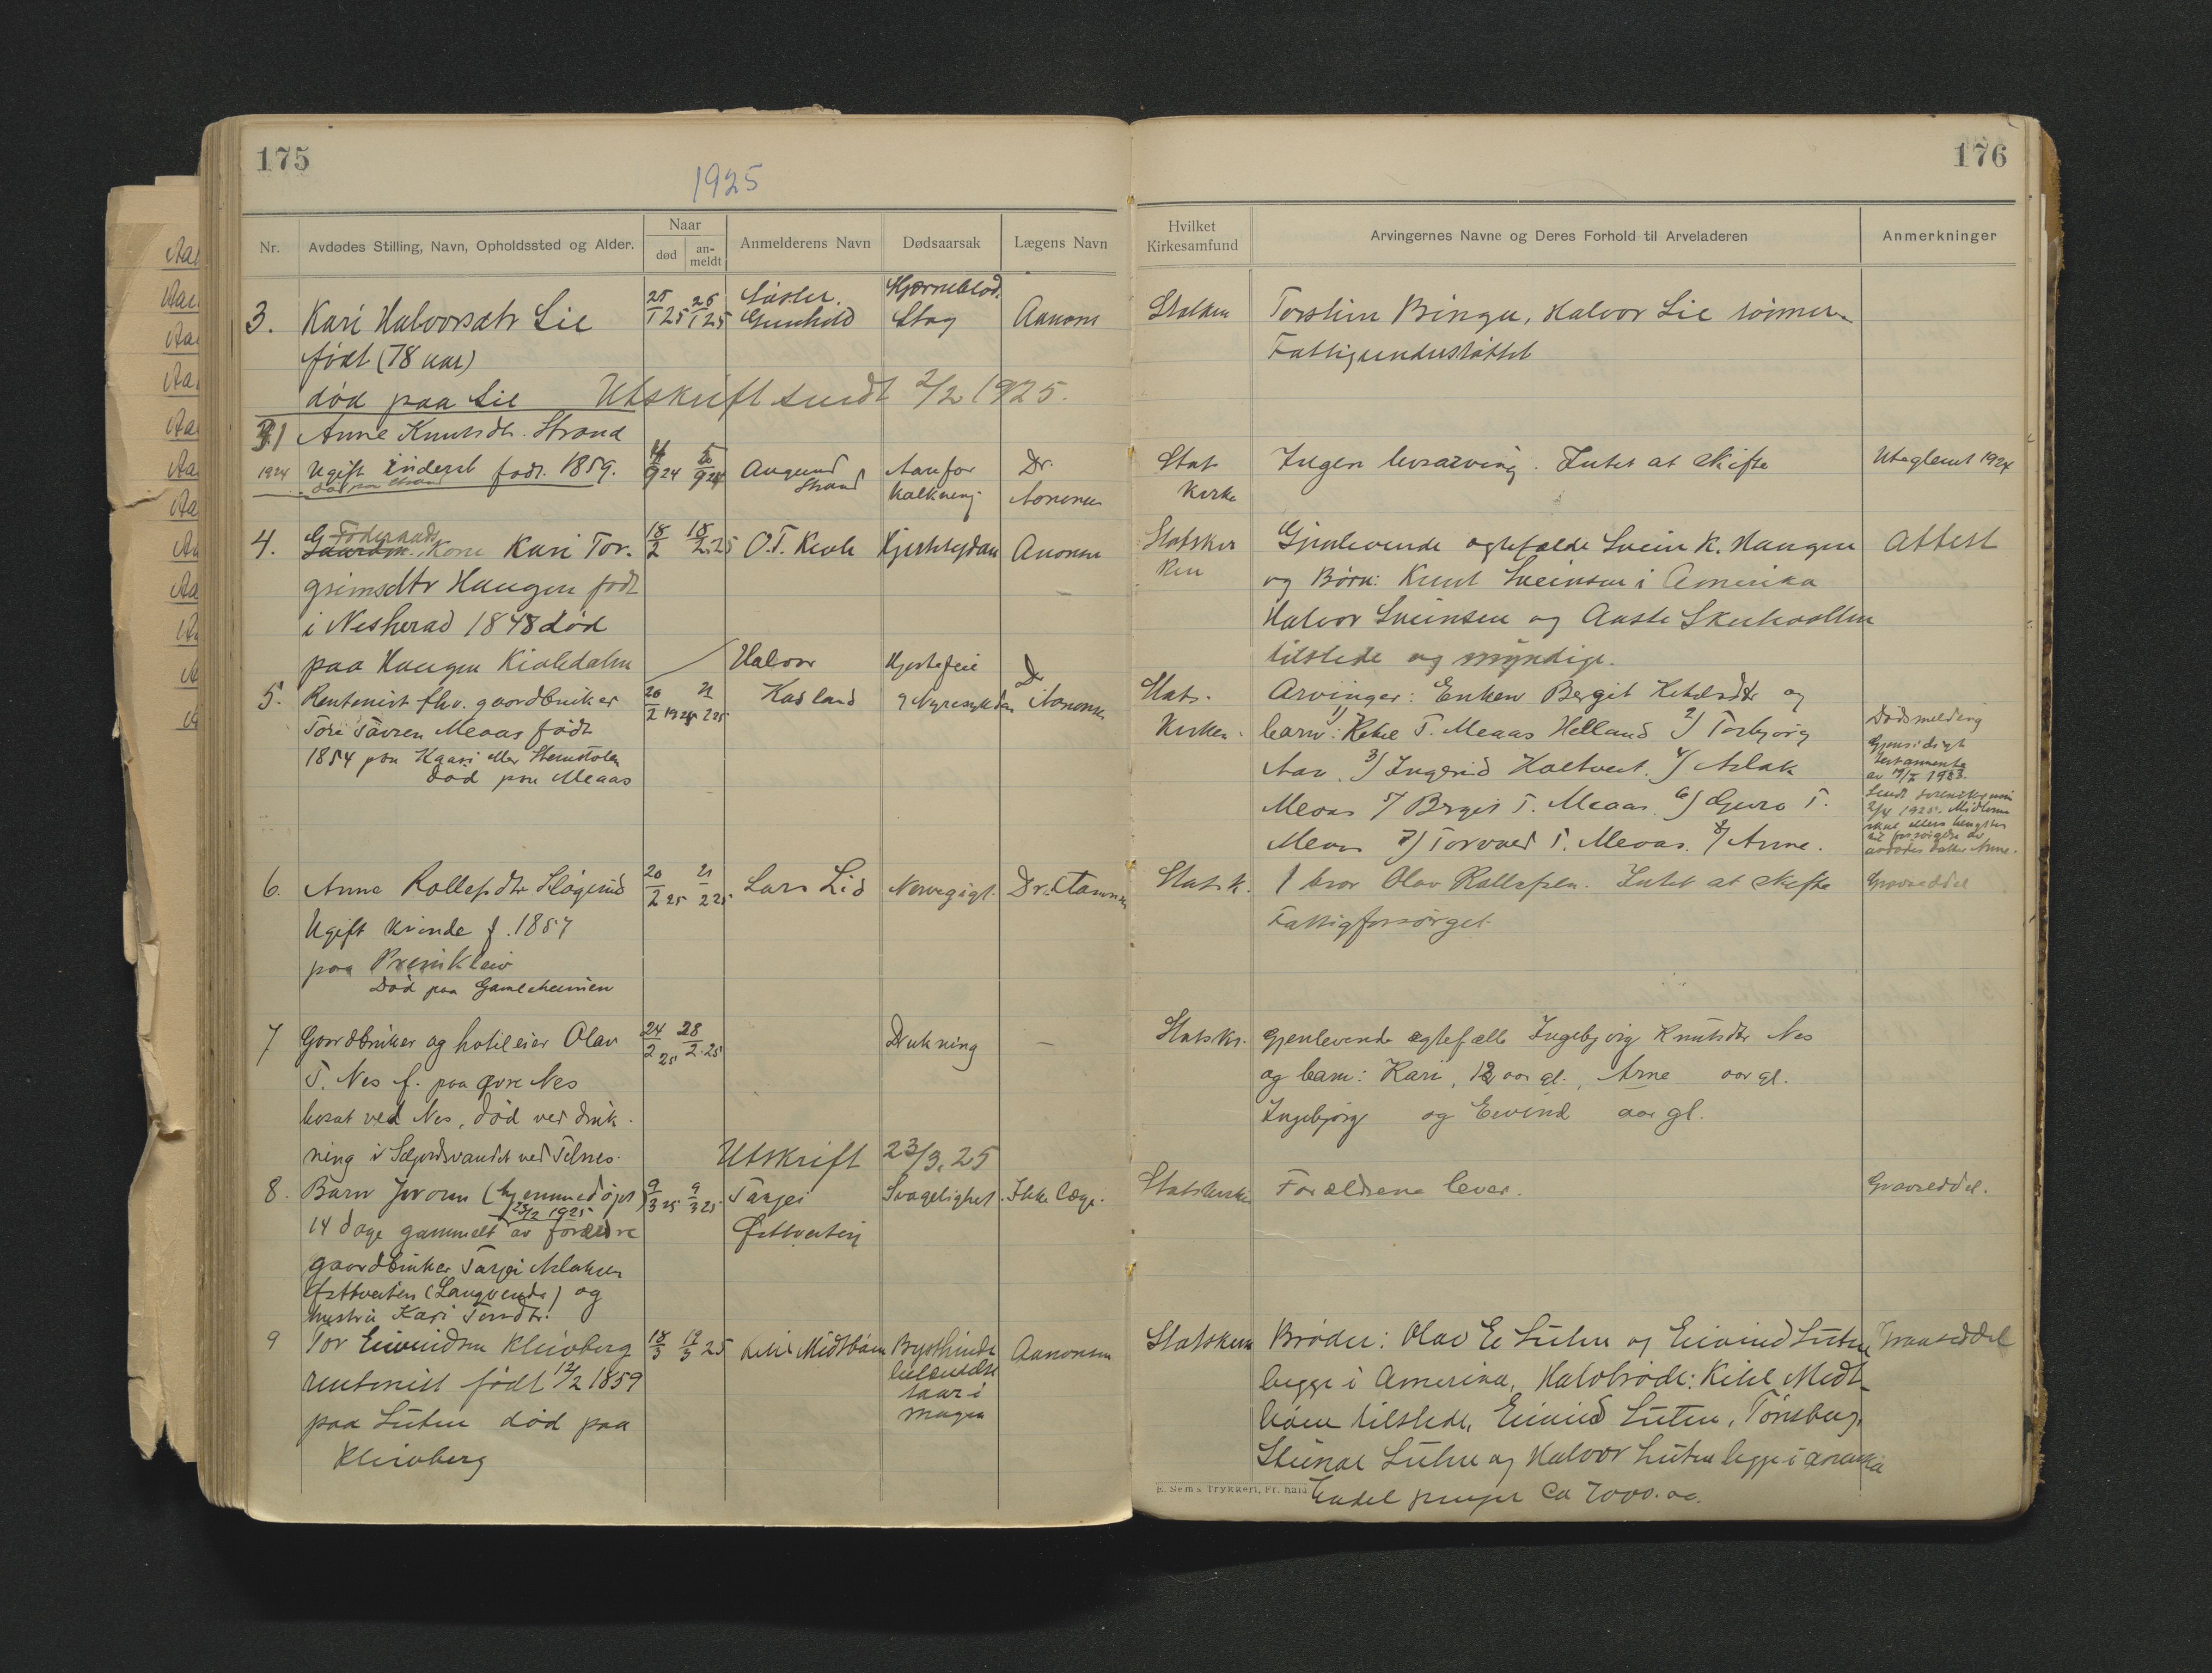 175
1925
Nr.
Avdødes Stilling, Navn, Opholdssted og Alder.
Naar
død
an-
meldt
Anmelderens Navn
Dødsaarsak
Lægens Navn
3.
Kari Halvorsdtr Lie
født (78 aar)
død paa Lie
25/1 25
26/1 25
Gunhild
Hjerneblod.
Slag
Aanons
Utskrift sendt 2/2 1925.
1924
Anne Knutsdtr. Strand
Ugift inderst født. 1859.
død paa Strand
9 24
9 24
Augund
Strand
Aarefor
kalkning
Dr.
Aanonsen
4.
Kone Kari Tor-
grimsdtr Haugen født
i Nesherad 1848 død
paa Haugen Kivledalen
18/2
18/2. 25
O.T. Kivle
Hjertesygdom
Aanonsen
5.
Rentenist fhv. gaardbruker
Tore Tovsen Meaas født
1854 paa Kaasi eller Stemstolen
død paa Meaas
20/2 1925
21/2 25
Halvor
Kasland
Hjertefeil
og Nyresykdom
Dr
Aanonsen
6.
Anne Rollefsdtr Sløgerud
Ugift kvinde f. 1857
paa
Død paa Gamleheimen
20/2 25
21/2 25
Lars Lid
Nervegigt.
Dr. Aanonsen
7
Gaardbruker og hotileier Olav
T. Nes f. paa øvre Nes
bosat ved Nes, død ved druk-
ning i Seljordsvandet ved Telnes.
24/2 25
28/2. 25
Drukning
—
Utskrift 23/3. 25
8.
Barn Jorunn (hjemmedøpt)
23/2 1925
14 dage gammelt av forældre
gaardbruker Tarjei Aslaksen
Østtveiten (Langvende) og
hustru Kari Torsdtr.
9/3 25
9/3 25
Tarjei
Østtveiten
Svagelighet.
Ikke læge.
9
Tor Eivindsen Kleivberg
rentenist født 12/2 1859
paa Luten død paa
Kleivberg
18/3
19/3 25
Ketil Midtbøen
Bysthinde
betændelse
saar i
magen
Aanonsen
176
Hvilket
Kirkesamfund
Arvingernes Navne og Deres Forhold til Arveladeren
Anmerkninger
Statskn
Torstein Bringa, Halvor Lie sønner.
Fattigunderstøttet
Stats
kirke
Ingen livsarving. Intet at skifte
Uteglemt 1924
Statskir
ken
Gjenlevende egtefælde Svein K. Haugen
og Børn: Knut Sveinsen i Amerika
Halvor Sveinsen og Aaste Skeihvollen
tilstede og myndige.
Attest
Stats-
kirken.
Arvinger: Enken Bergit Ketilsdtr og
barn: 1) Ketil T. Meaas Helland 2) Torbjørg
Aas 3) Ingerid Holtveit. 4) Aslak
Meaas 5) Bergit T. Meaas. 6) Guro T.
Meaas 7) Torvald T. Meaas. 8) Anne.
Dødsmelding
Gjensidigt
testamente
Stats k.
1 bror Olav Rollefsen. Intet at skifte
Fattigforsørget.
Gravseddel
Statskr.
Gjenlevende egtefælle Ingebjørg Knutsdtr Nes
og barn: Kari, 12 aar gl., Arne aar gl.
Ingebjørg og Eivind aar gl.
Statskirke
Forældrene lever.
Gravseddel.
Statskirken
Brødre: Olav E Luten og Eivind Luten
begge i Amerika, Halvbrødre: Ketil Midt-
bøen tilstede, Eivind Luten, Tønsberg,
Steinar Luten og Halvor Luten begge i Amerika
Endel penger Ca 7000.00.
Gravseddel
E. Sems Trykkeri, Fr. hald